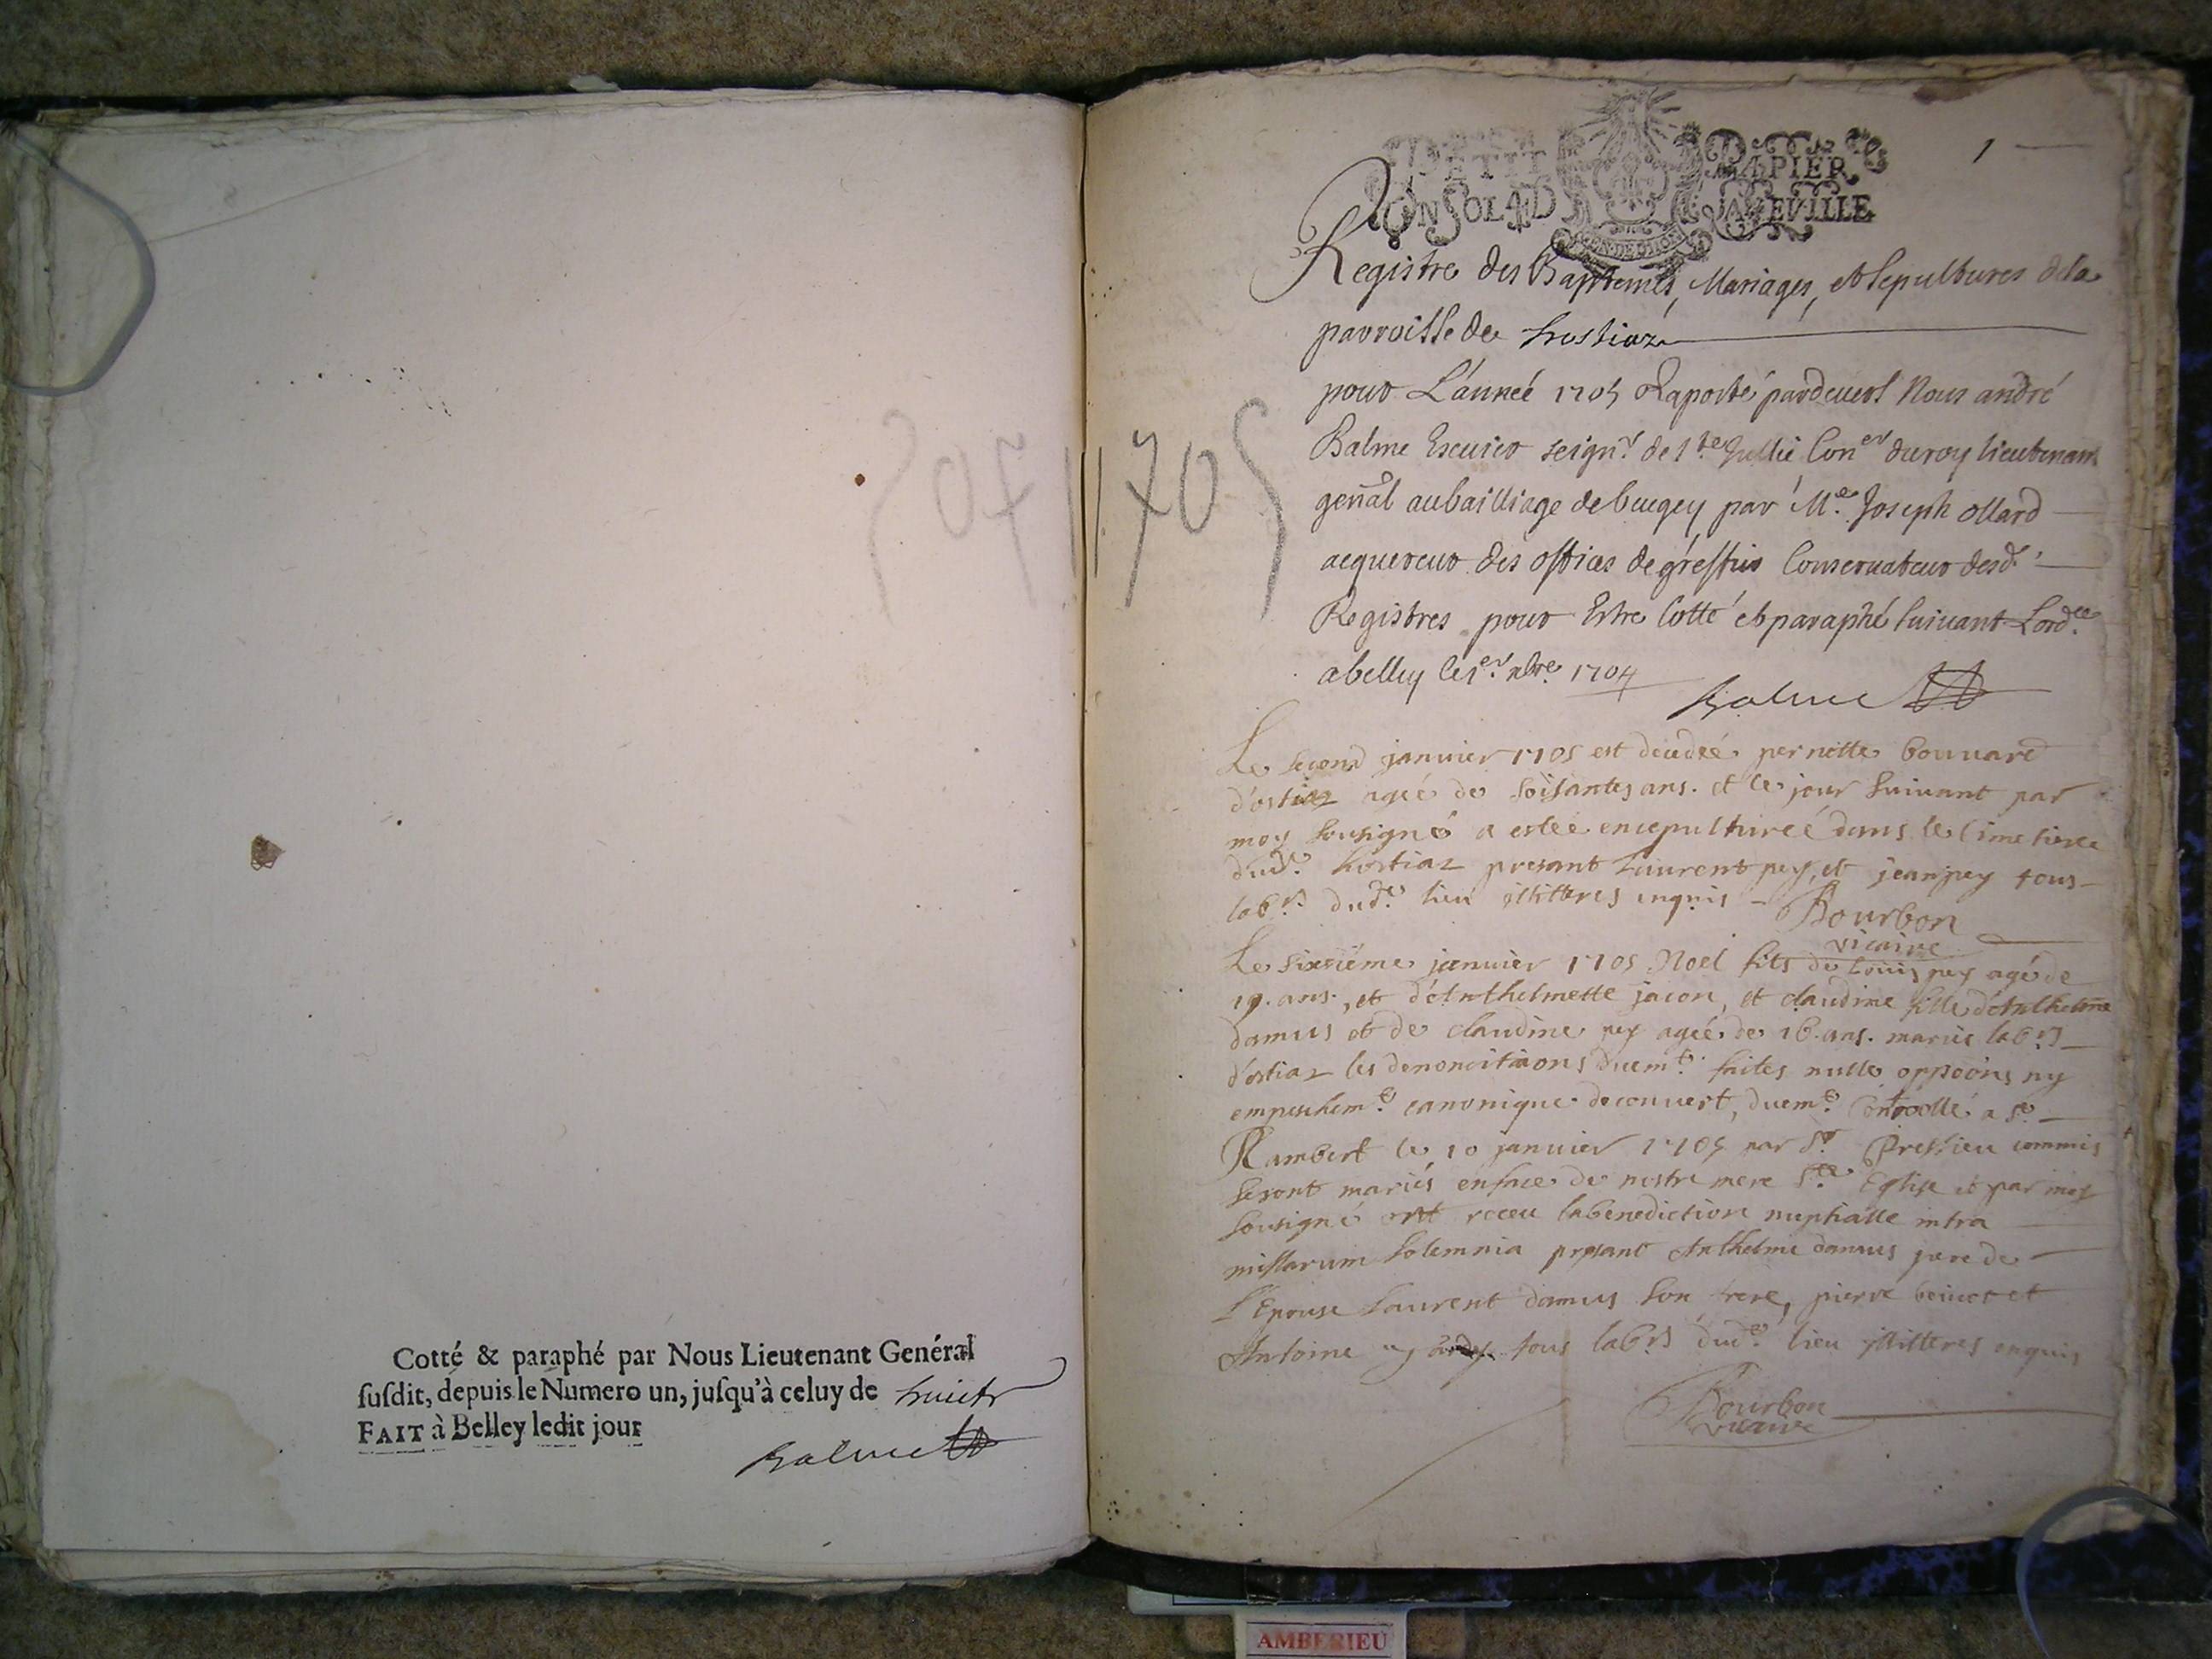 Cotté & paraphé par Nous Lieutenant Genéral
suſdit, depuis le Numero un, juſqu'à celuy de huict
FAIT à Belley ledit jour
Balme
1705
1
PETIT PAPIER
ON SOL
GEN DE DIION
Registre des Baptemes, Mariages, et sepultures dela
parroisse de hostiaz
pour L'année 1705 Raporté pardevers Nous andré
Balme Escuier seignr de ste Jullie Coner du roy lieutenant
genal au bailliage de bugey par Me Joseph ollard
acquereur des offices de greffier Conservateur desd.
Registres pour Estre Cotté et paraphé suivant Lordce
a belley le 1er xbre 1704
Balme
Le second janvier 1705 est decedée pernette bouvard
d'ostiaz agée de soisantes ans. et le jour suivant par
moy sousigné a estée ensepulturée dans le cimetiere
dud. hostiaz presant Laurent pey, et jean pey tous
labrs dud. lieu illitteres enquis Bourbon
vicaire
Le sixsiéme janvier 1705 Noel fils de Louis pey agé de
19. ans, et d'Anthelmette jacon, et claudine fille d'Anthelme
damus et de claudine pey agée de 16. ans. mariés labrs
d'ostiaz les denoncitiaons duemt faites nulle opposions ny
empeschemt canonique decouvert, duemt controllé a St
Rambert le 10 janvier 1705 par Sr Pressieu commis
se sont mariés en face de nostre mere Ste Eglise et par moy
sousigné ont receu la benediction nuptialle intra
missarum solemnia presant Anthelme damus pere de
l'Epouse Laurent damus son frere, pierre et
Antoine tous labrs dud. lieu illitteres enquis
Bourbon
vicaire
AMBERIEU